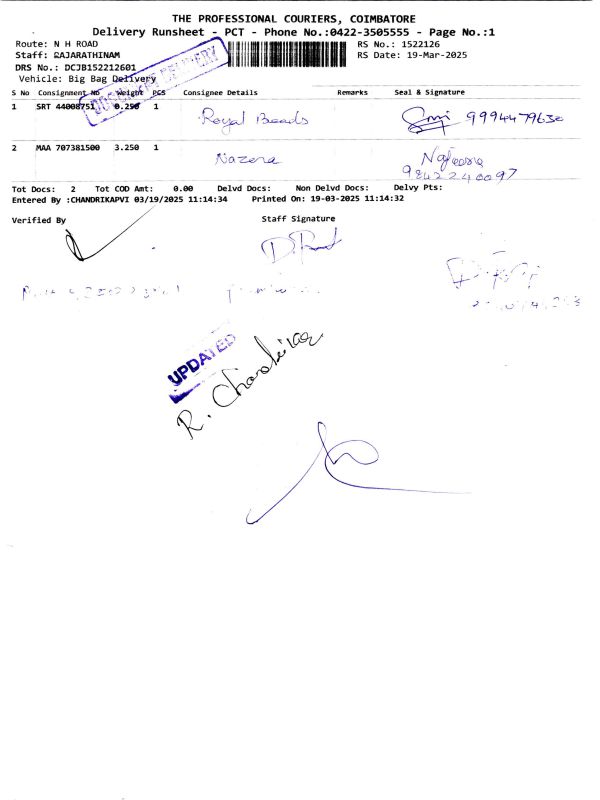 THE PROFESSIONAL COURIERS, COIMBATORE
Delivery Runsheet - PCT - Phone No.:0422-3505555 - Page No.:1
Route: N H ROAD RS No.: 1522126
Staff: RAJARATHINAM RS Date: 19-Mar-2025
DRS No.: DCJB152212601
Vehicle: Big Bag Delivery
DOCUMENT DELIVERY
S No Consignment No Weight PCS Consignee Details Remarks Seal & Signature
1 SRT 44008751 0.250 1 Royal Beads 9994479630
2 MAA 707381500 3.250 1 Nazera
9842240097
Tot Docs: 2 Tot COD Amt: 0.00 Delvd Docs: Non Delvd Docs: Delvy Pts:
Entered By :CHANDRIKAPVI 03/19/2025 11:14:34 Printed On: 19-03-2025 11:14:32
Verified By Staff Signature
UPDATED
R. Chandrika